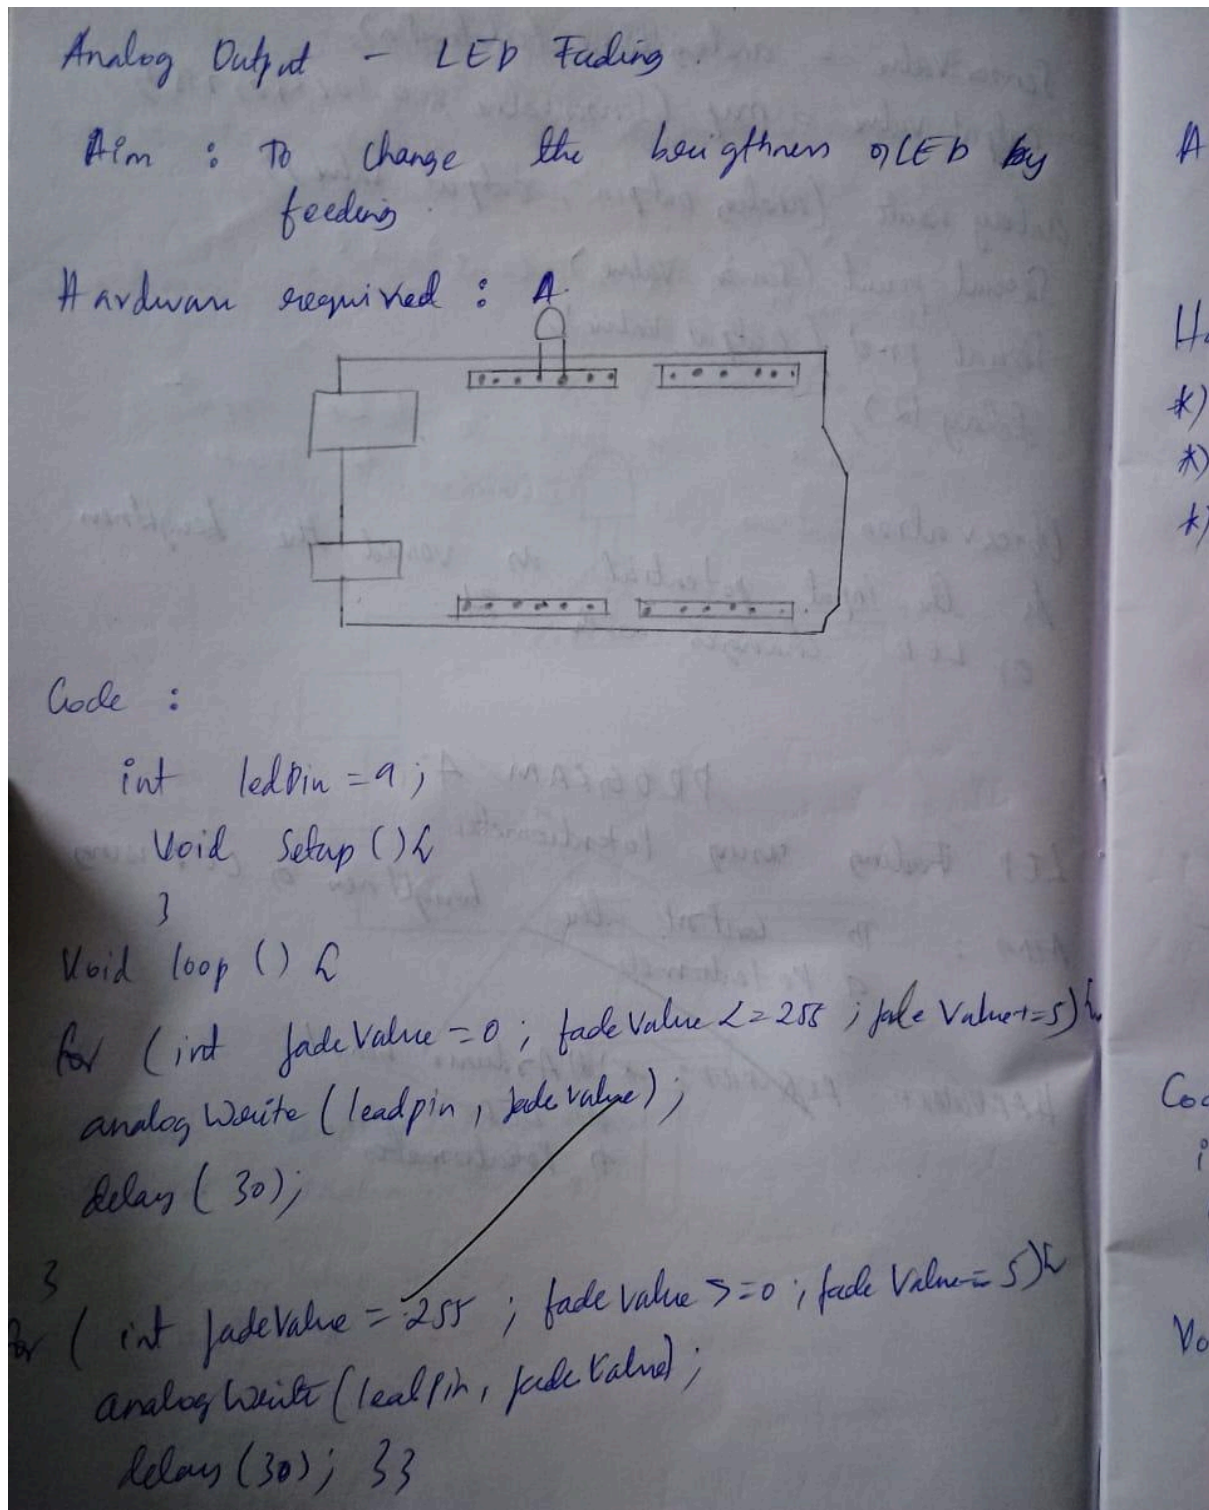 Analog Output - LED Fading
Aim : To change the beigthness of LED by
feeding.
Hardware required : A
Code :
int ledPin = 9;
Void Setup () {
}
Void loop () {
for (int fadeValue = 0 ; fadeValue <= 255 ; fade Value += 5) {
analogWrite (leadpin , fadevalue) ;
delay ( 30);
}
for ( int fadeValue = 255 ; fade value >= 0 ; fade Value -= 5) {
analogWrite (leadPin , fadeValue) ;
delay (30) ; }}
A
Ha
*)
*)
*)
Cod
i
Vo